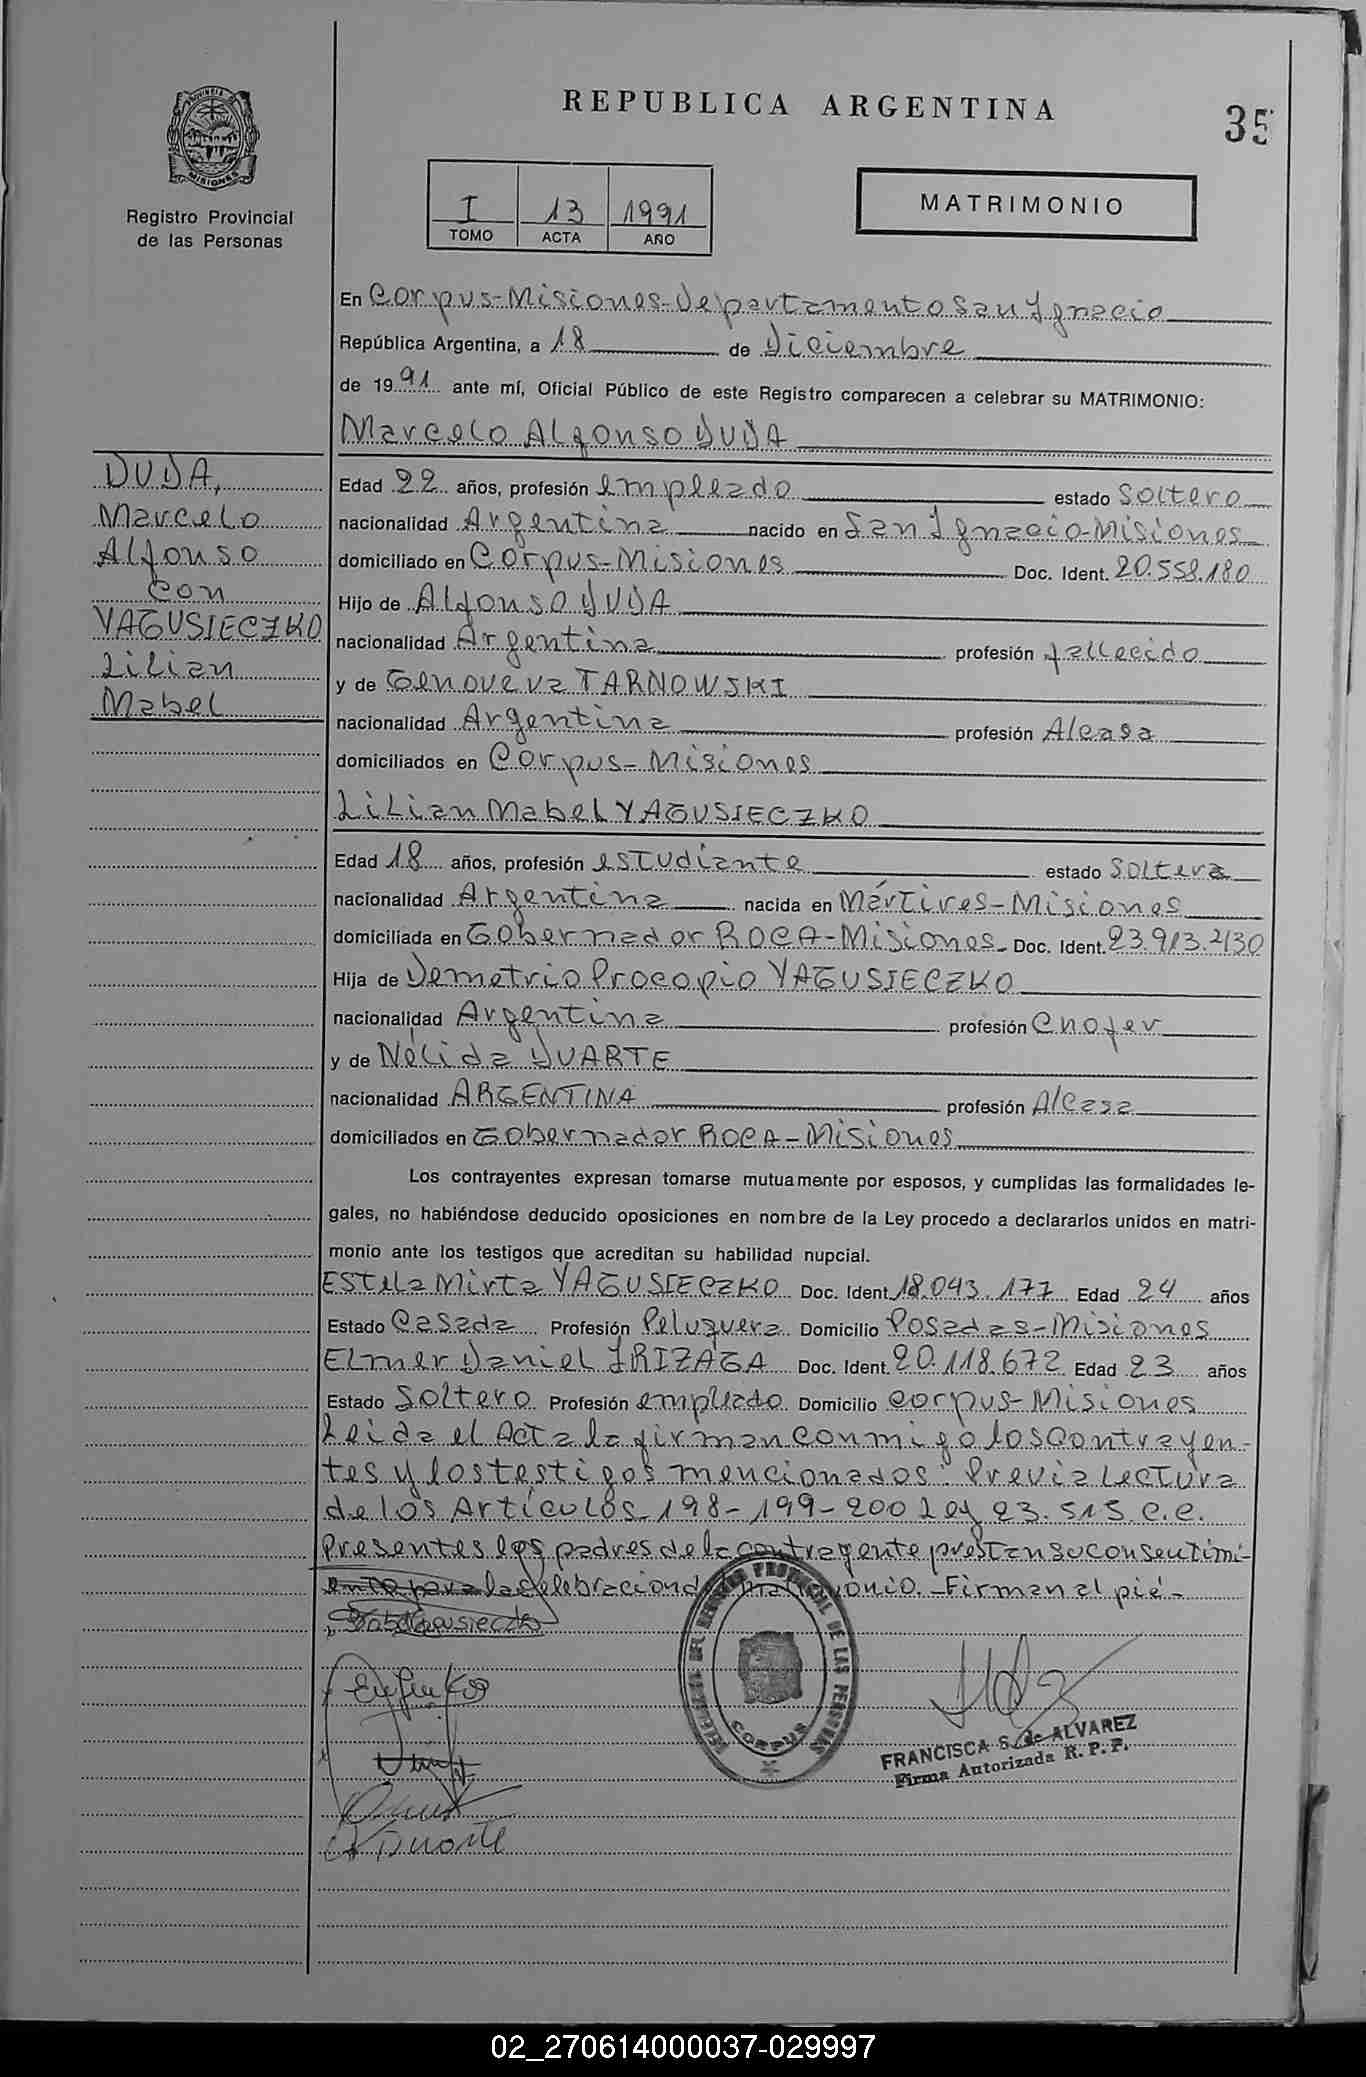 PROVINCIA DE
MISIONES
Registro Provincial
de las Personas
REPUBLICA ARGENTINA
35
I 13 1991
TOMO ACTA AÑO
MATRIMONIO
En Corpus-Misiones-Departamento San Ignacio
República Argentina, a 18 de Diciembre
de 1991 ante mí, Oficial Público de este Registro comparecen a celebrar su MATRIMONIO:
Marcelo Alfonso DUDA
DUDA,
Marcelo
Alfonso
con
YAGUSIECZKO
Lilian
Mabel
Edad 22 años, profesión empleado estado soltero
nacionalidad Argentina nacido en San Ignacio-Misiones
domiciliado en Corpus-Misiones Doc. Ident. 20.558.180
Hijo de Alfonso DUDA
nacionalidad Argentina profesión fallecido
y de Genoveva TARNOWSKI
nacionalidad Argentina profesión A/casa
domiciliados en Corpus-Misiones
Lilian Mabel YAGUSIECZKO
Edad 18 años, profesión estudiante estado soltera
nacionalidad Argentina nacida en Mártires-Misiones
domiciliada en Gobernador ROCA-Misiones Doc. Ident. 23.913.2130
Hija de Demetrio Procopio YAGUSIECZKO
nacionalidad Argentina profesión Chofer
y de Nélida DUARTE
nacionalidad ARGENTINA profesión A/casa
domiciliados en Gobernador ROCA-Misiones
Los contrayentes expresan tomarse mutuamente por esposos, y cumplidas las formalidades le-
gales, no habiéndose deducido oposiciones en nombre de la Ley procedo a declararlos unidos en matri-
monio ante los testigos que acreditan su habilidad nupcial.
Estela Mirta YAGUSIECZKO Doc. Ident. 18.043.177 Edad 24 años
Estado Casada Profesión Peluquera Domicilio Posadas-Misiones
Elmer Daniel IRIZAGA Doc. Ident. 20.118.672 Edad 23 años
Estado soltero Profesión empleado Domicilio Corpus-Misiones
Leida el Acta la firman conmigo los contrayen-
tes y los testigos mencionados. Previa lectura
de los Artículos 198-199-200 Ley 23.515 C.C.
Presentes los padres de la contrayente prestan su consentimi-
ento para la celebracion del matrimonio.-Firman al pié-
DEL REGISTRO PROVINCIAL DE LAS PERSONAS
CORPUS
FRANCISCA S. de ALVAREZ
Firma Autorizada R. P. P.
N Duarte
02_270614000037-029997